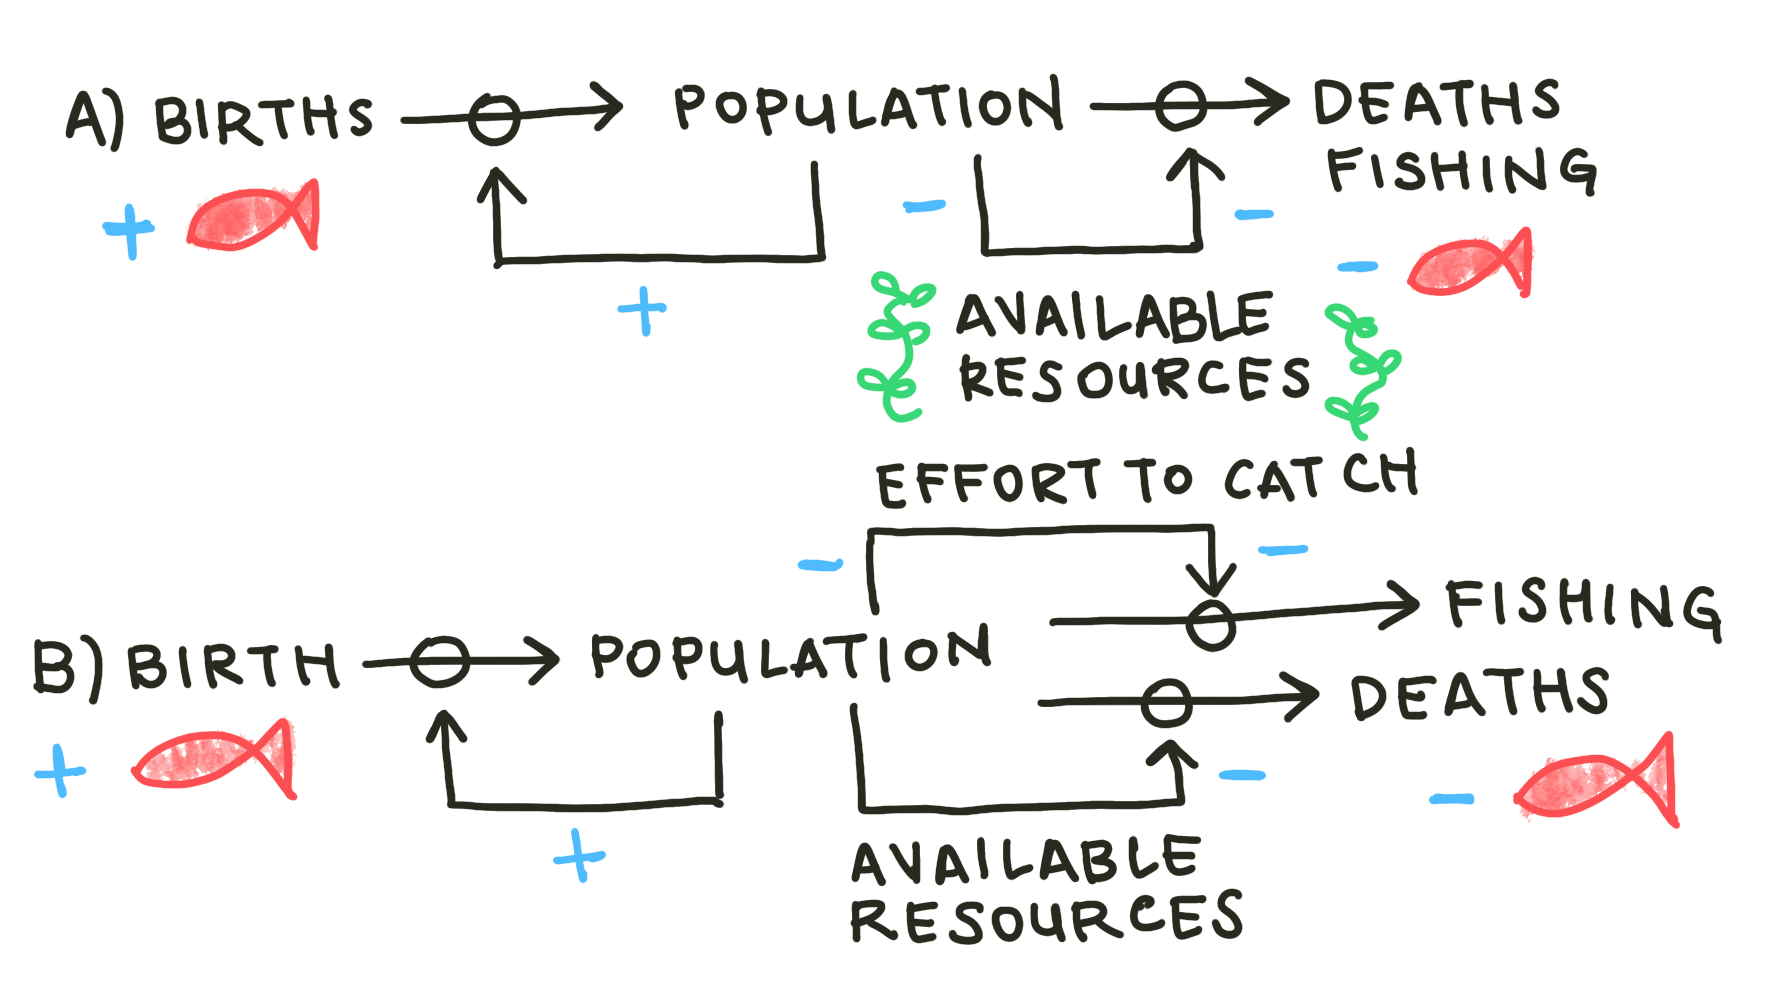 A) BIRTHS POPULATION DEATHS
FISHING
+ - - -
+
AVAILABLE
RESOURCES
EFFORT TO CATCH
- -
FISHING
B) BIRTH POPULATION
DEATHS
+ - -
+
AVAILABLE
RESOURCES